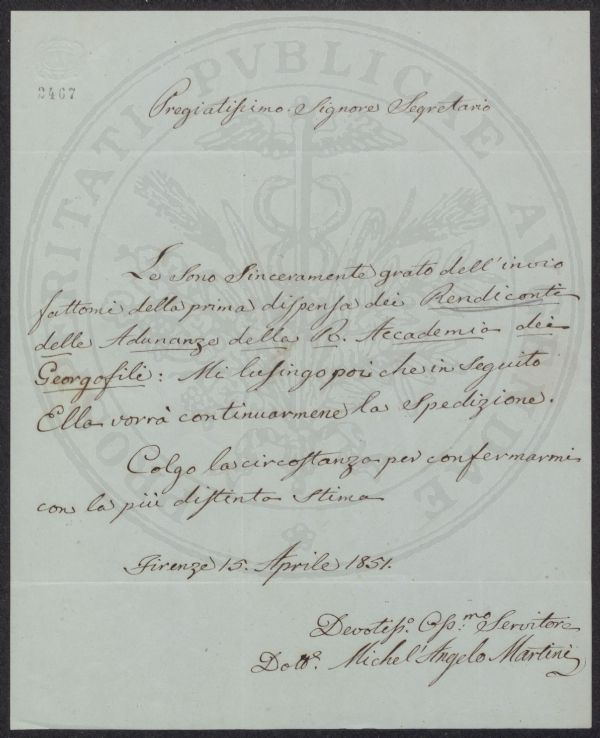 2467
Pregiatissimo Signore Segretario
Le sono sinceramente grato dell'invio
fattomi della prima dispensa dei Rendiconti
delle Adunanze della R. Accademia dei
Georgofili: Mi lusingo poi che in seguito
Ella vorrà continuarmene la spedizione.
Colgo la circostanza per confermarmi
con la più distinta stima
Firenze 15. Aprile 1851.
Devotiss.o Oss.mo Servitore
Dott.e Michel'Angelo Martini
PROSPERITATI PVBLICAE AVGENDAE